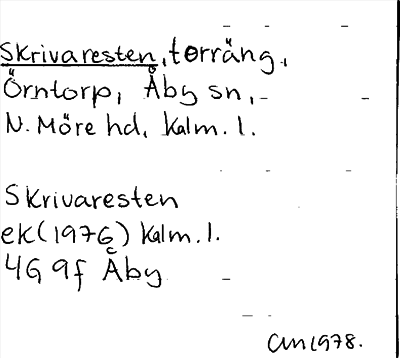 Skrivaresten, torräng,
Örntorp, Åby sn,
N. Möre hd, Kalm. l.
Skrivaresten
ek (1976) Kalm. l.
4G 9f Åby
1978.